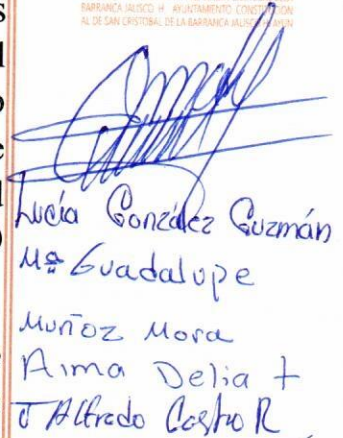 BARRANCA JALISCO H. AYUNTAMIENTO CONSTITUCION
AL DE SAN CRISTOBAL DE LA BARRANCA JALISCO H. AYUN
Lucía González Guzmán
Ma Guadalupe
Muñoz Mora
Alma Delia t
J Alfredo Castro R